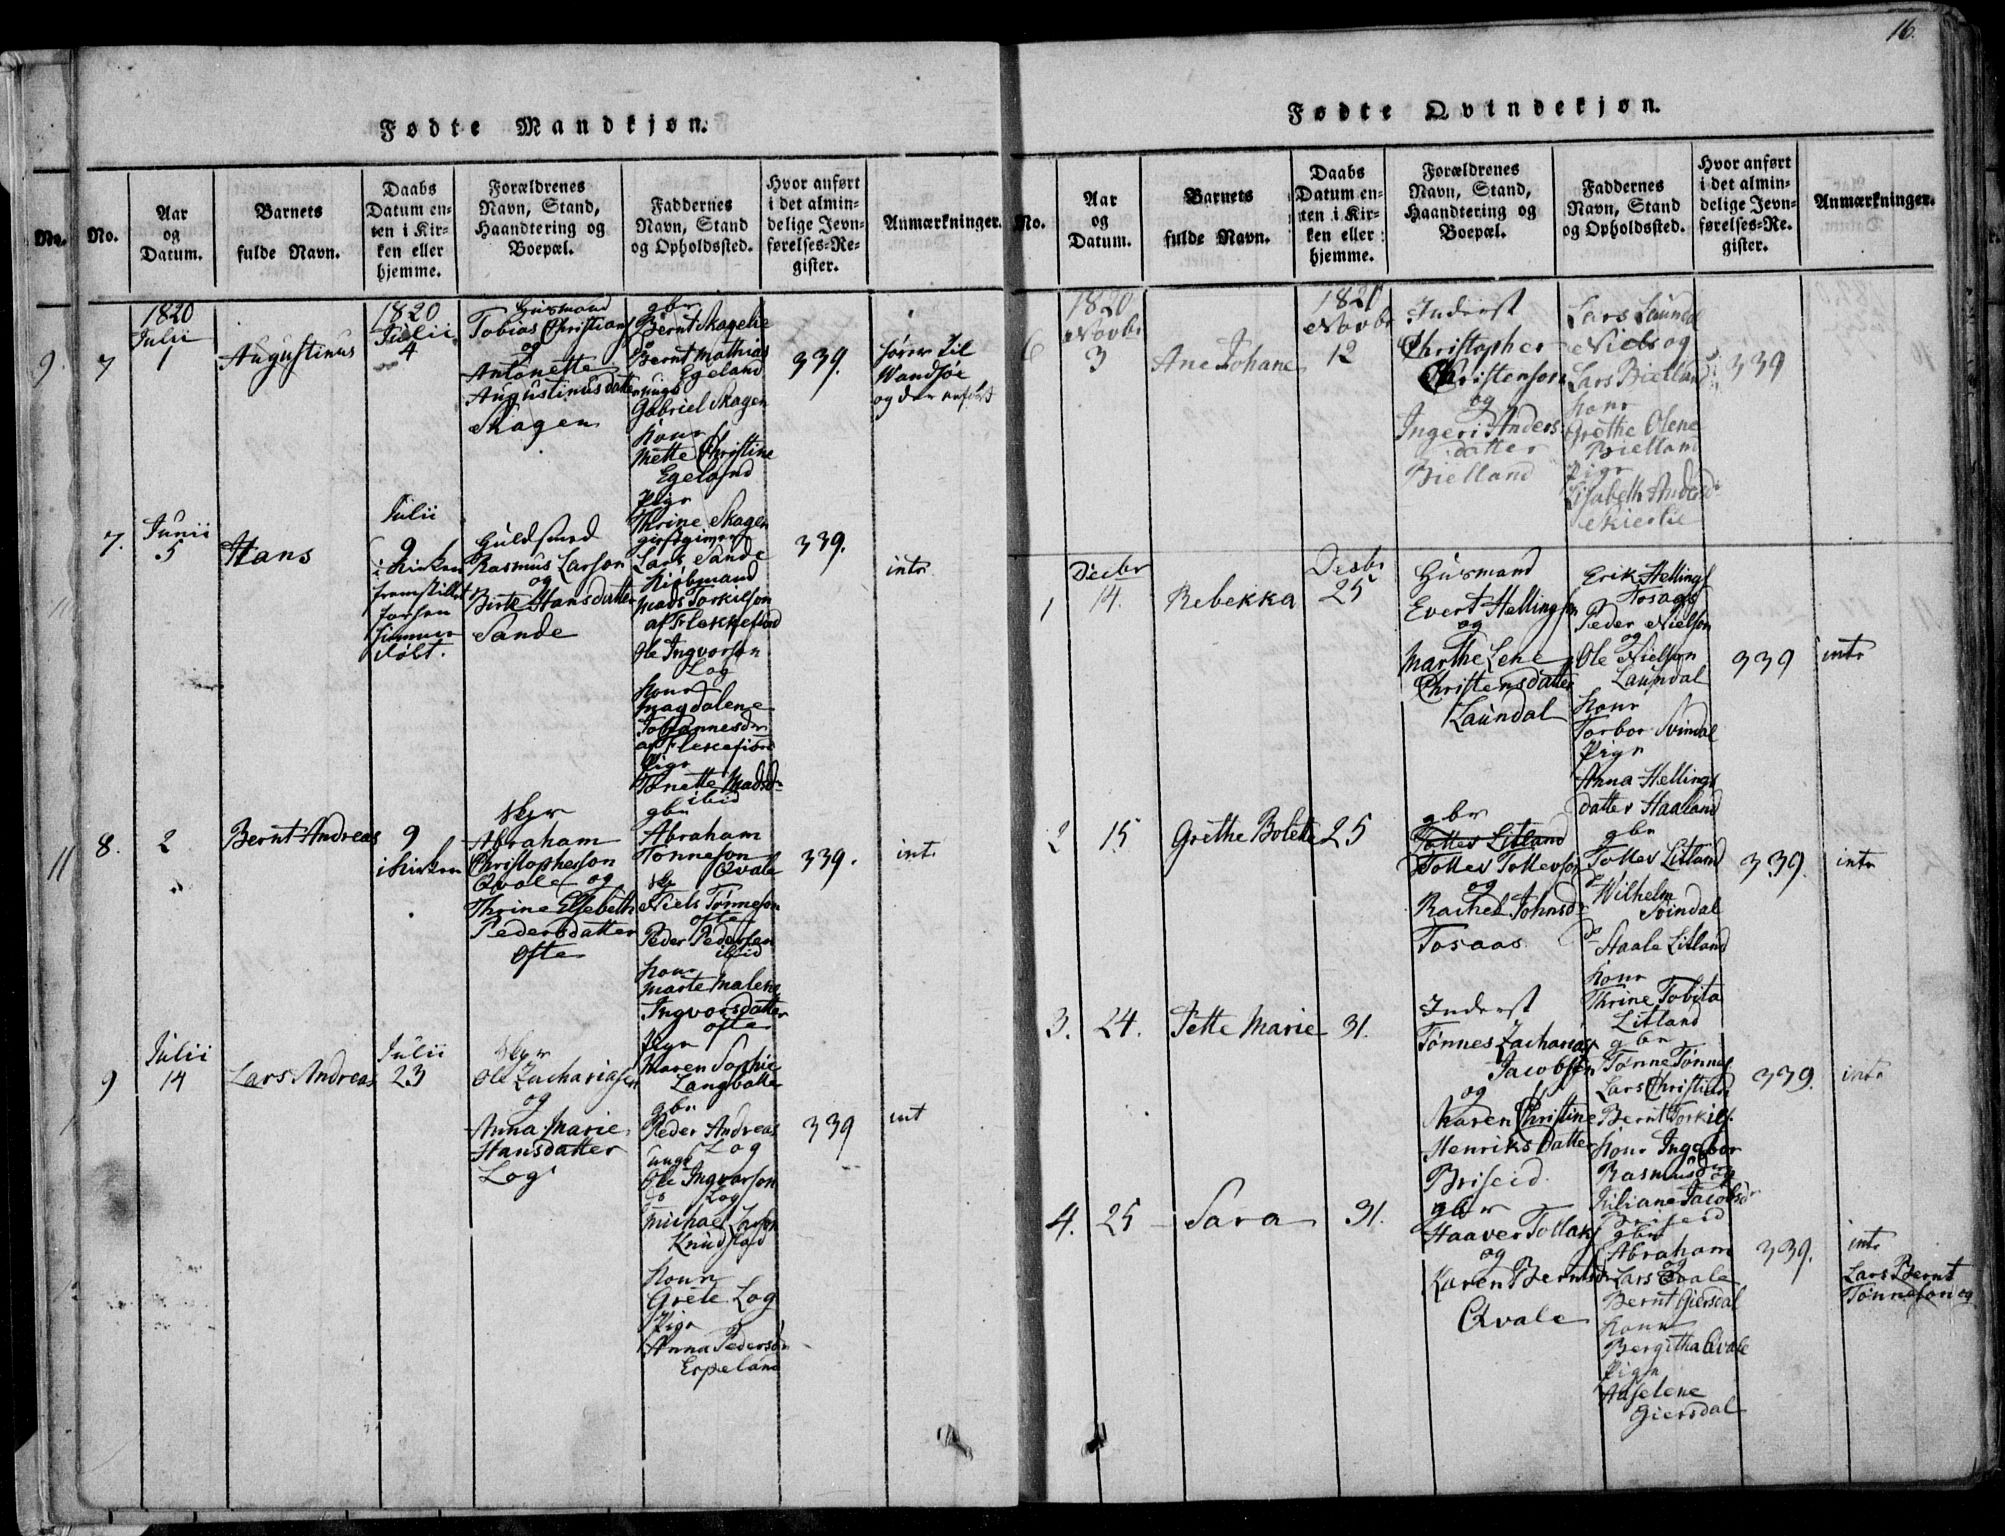 16.
Fødte Mandkjøn.
No.
No.
Aar
og
Datum.
Barnets
fulde Navn.
Daabs
Datum en-
ten i Kir-
ken eller
hjemme.
Forældrenes
Navn, Stand,
Haandtering og
Boepæl.
Faddernes
Navn, Stand
og Opholdssted.
Hvor anført
i det almin-
delige Jevn-
førelses-Re-
gister.
Anmærkninger.
9.
7
1820
Julii
1
Augustinus
1820
Julii
4
Huusmand
Tobias Christians
og
Antonette
Augustinusdatter
Skagen
gbr
Bernt Skagelie
Bernt Mathias
Egeland
unge
Gabriel Skagen
Kone
Mette Christine
Egeland
Pige
Thrine Skagen
339.
hører til
Wandsøe
og der anført
7.
Junii
5
Hans
Julii
9
i Kirken
fremstillet
forhen
hjemme
døbt.
Guldsmed
Rasmus Larson
og
Birte Hansdatter
Sande
giestgiver
Lars Sande
Kiøbmand
Mads Torkilson
af Flekkefiord
Ole Ingvorson
Log
Kone
Magdalene
Johannesdr
af Flekefiord
Pige
Tonette Madsd
ibid
339.
intr
11
8.
2
Bernt Andreas
9
i Kirken
Skpr
Abraham
Christopherson
Qvale og
Thrine Elsebeth
Pedersdatter
Ofte
gbr
Abraham
Tonneson
Qvale
Niels Tønneson
Ofte
Peder Pedersen
ibid
Kone
Marte Malene
Ingvorsdatter
Ofte
Pige
Maren Sophie
Langbotte
339.
int.
9
Julii
14
Lars Andreas
Julii
23
Skpr
Ole Zachariasen
og
Anna Marie
Hansdatter
Log
gbr
Peder Andreas
Log
unge
Ole Ingvorson
Log
Michael Larson
Knudstad
Kone
Grete Log
Pige
Anna Pedersdr
Espeland
339
int
Fødte Qvindekjøn.
No.
Aar
og
Datum.
Barnets
fulde Navn.
Daabs
Datum en-
ten i Kir-
ken eller
hjemme.
Forældrenes
Navn, Stand,
Haandtering og
Boepæl.
Faddernes
Navn, Stand
og Opholdssted.
Hvor anført
i det almin-
delige Jevn-
førelses-Re-
gister.
Anmærkninger.
6
1820
Novbr
3
Ane Johane
1820
Novbr
12
Inderst
Christopher
Christenson
og
Ingeri Anders
datter
Bielland
Lars Laundal
Niels og
Lars Bielland
Kone
Grethe Olene
Bielland
Pige
Elisabeth Andersd
Skierlie
339
1
Decbr
14.
Rebekka
Decbr
25
Huusmand
Evert Hellingsøn
og
Marthe Lene
Christensdatter
Laundal
Erik Hellings
Tosaas
Peder Nielson
og
Ole Nielson
Laundal
Kone
Torbor Svindal
Pige
Anna Hellings
datter Haaland
339
intr
2
15
Grethe Bolette
25
gbr
Tolles Litland
Tolles Tollevson
og
Rachel Johnsd
Tosaas
gbr
Tolles Litland
Wilhelm
Svindal
Staale Litland
Kone
Thrine Tobita
Litland
339.
intr
3.
24.
Pette Marie
31.
Inderst
Tønnes Zacharias
Jacobsen
og
Maren Christine
Henriksdatter
Briseid
gbr
Tønne Tønnes
Lars Christian
Bernt Torkils
Kone Ingebor
Rasmusdr og
Juliane Jacobsdr
Briseid
339.
intr
4.
25
Sara
31.
gbr
Haaver Tollaks
og
Karen Berntsdr
Qvale
gbr
Abraham
og
Lars Qvale
Bernt Giersdal
Kone
Bergitha Qvale
Pige
Adselene
Giersdal
339.
intr
Lars Bernt
Tønneson og